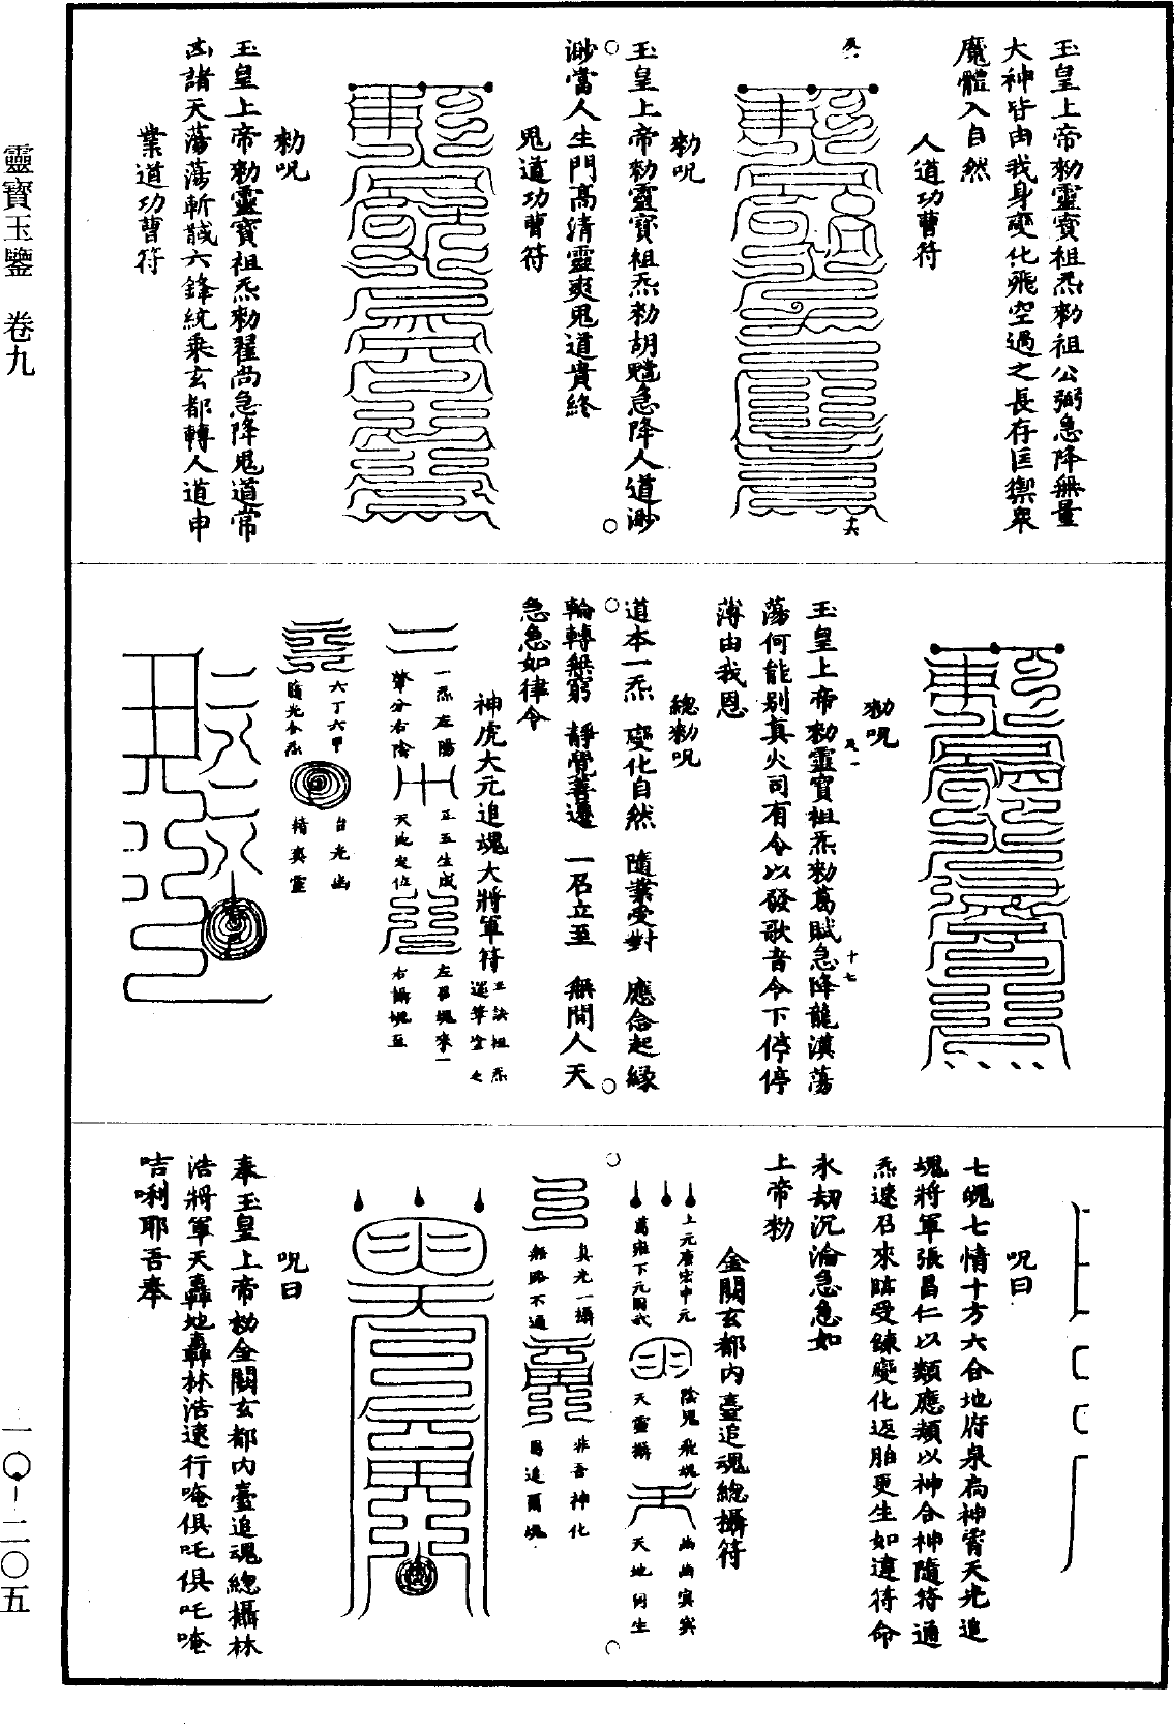 玉皇上帝勑靈寶祖炁勑祖公弼急降無量
大神皆由我身變化飛空過之長存匡禦眾
魔體入自然
人道功曹符
勑呪
玉皇上帝勑靈寶祖炁勑胡魒急降人道渺
渺當人生門高清靈爽鬼道貴終
鬼道功曹符
勑呪
玉皇上帝勑靈寶祖炁勑翟尚急降鬼道常
凶諸天蕩蕩斬馘六鋒統乘玄都轉人道申
業道功曹符
十六
勑呪
玉皇上帝勑靈寶祖炁勑葛賦急降龍漢蕩
蕩何能別真火司有令以發歌音令下停停
薄由我恩
十七
總勑呪
道本一炁 變化自然 隨業受對 應念起緣
輪轉無窮 靜覺善邊 一召立至 無間人天
急急如律令
神虎大元追魂大將軍符
一炁左陽
肇分右陰
正五生成
天地定位
左召魂來
右攝魄至
六丁六甲
台光幽
精爽靈
呪曰
七魄七情十方六合地府泉扃神霄天光追
魂將軍張昌仁以類應類以神合神隨符通
炁速召來臨受鍊變化返胎更生如違符命
永劫沉淪急急如
上帝勑
金闕玄都內臺追魂總攝符
上元唐宏中元
葛雍下元周武
陰鬼飛魂
天靈攝
幽幽冥冥
天地同生
真光一攝
無路不通
非吾神化
曷追爾魂
呪曰
奉玉皇上帝勑金闕玄都內臺追魂總攝林
浩將軍天轟地轟林浩速行唵俱吒俱吒唵
吉唎耶吾奉
靈寶玉鑒 卷九
一〇-二〇五